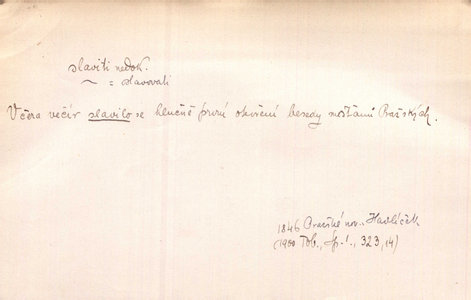 slaviti nedok.
~ = slavovati
Včera večír slavilo se hlučně první otevření besedy mešťanů Pražských.
1846 Pražské nov. Havlíček
(1900 Tob., sp. 1., 323, 14)